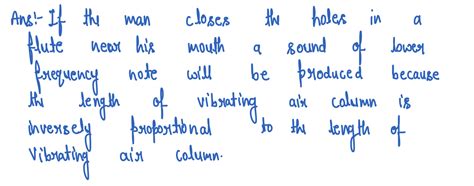 Ans:- If the man closes the holes in a
flute near his mouth a sound of lower
frequency note will be produced because
the length of vibrating air column is
inversely proportional to the length of
vibrating air column.